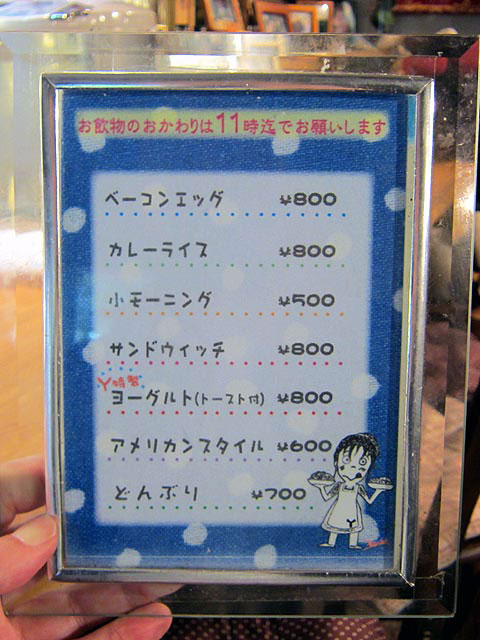 お飲物のおかわりは11時迄でお願いします
ベーコンエッグ ¥800
カレーライス ¥800
小モーニング ¥500
サンドウィッチ ¥800
Y特製
ヨーグルト(トースト付) ¥800
アメリカンスタイル ¥600
どんぶり ¥700
Y